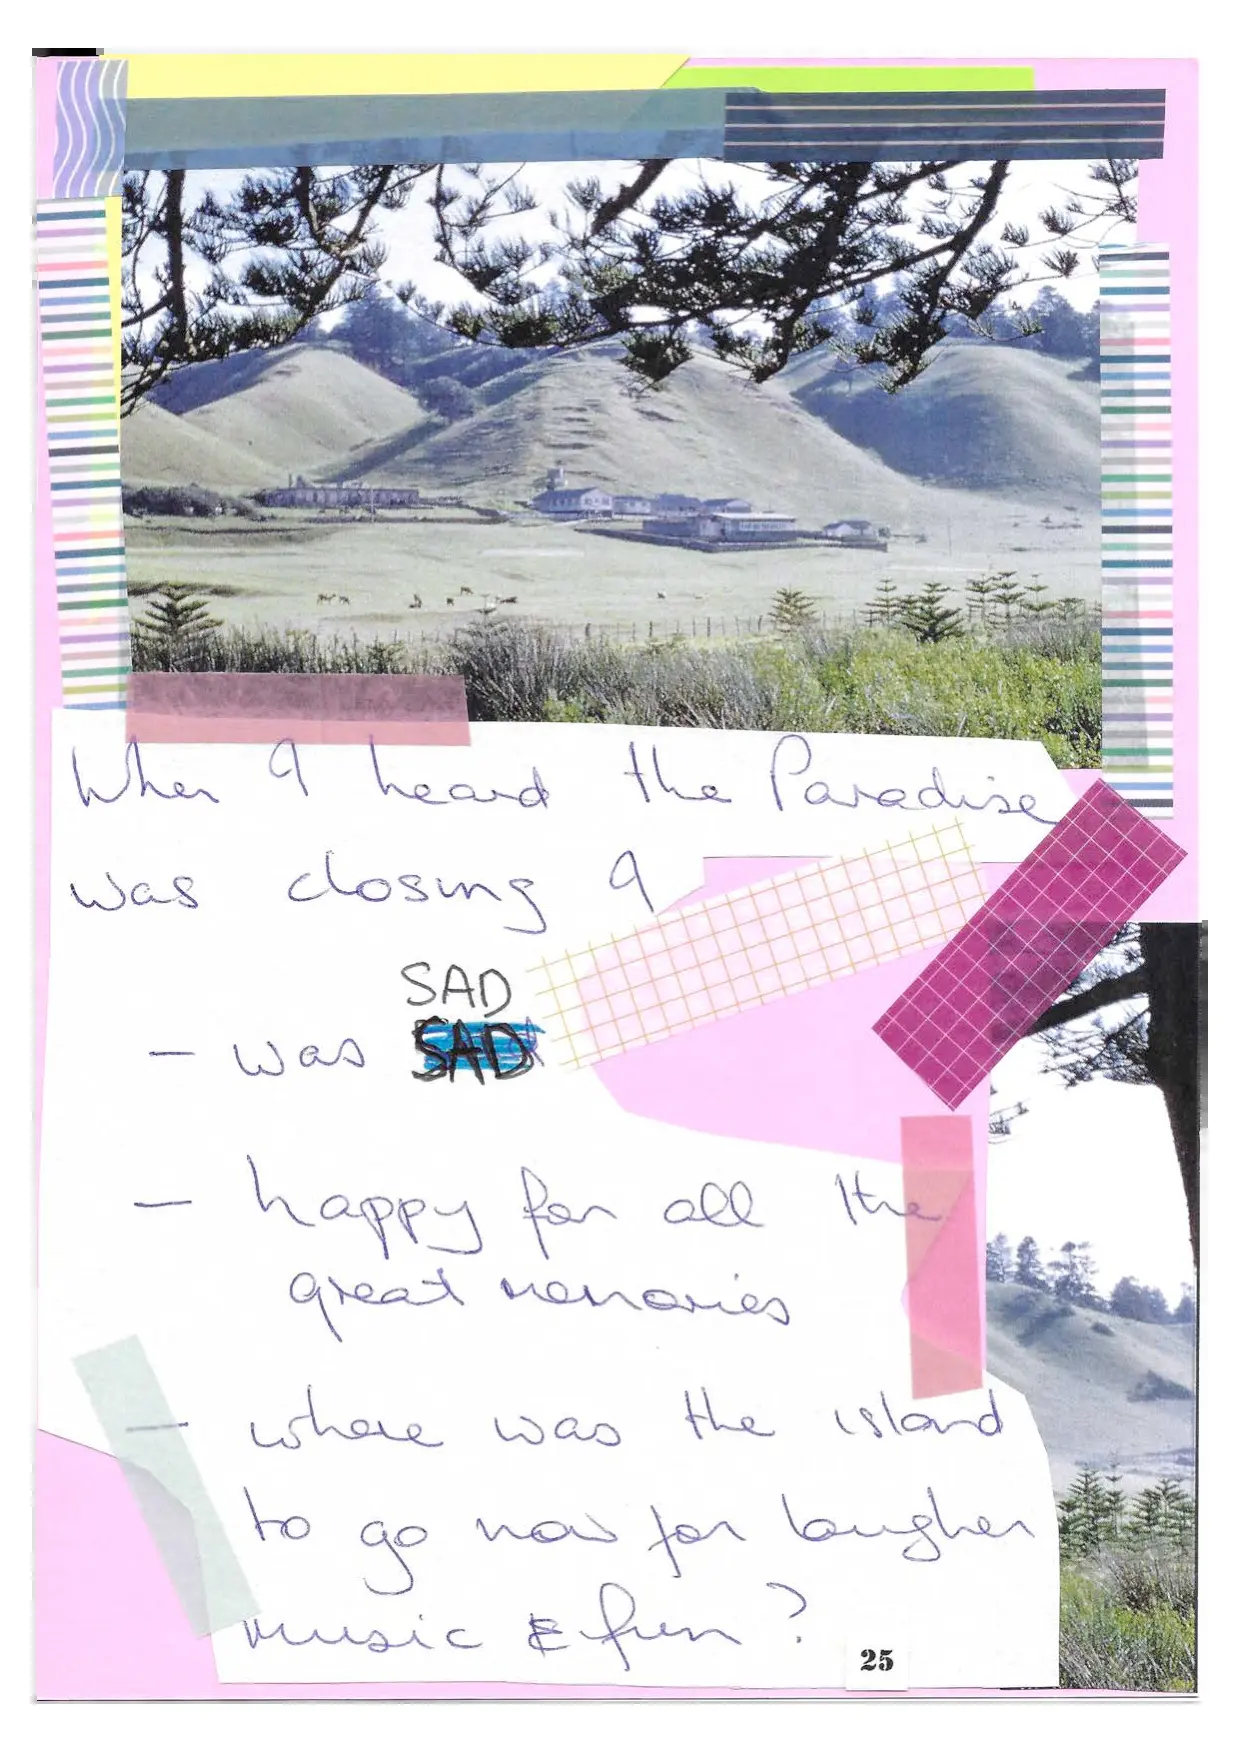 When I heard the Paradise
was closing I
SAD
- was SAD
- happy for all the
great memories
- where was the island
to go now for laughter
music & fun?
25